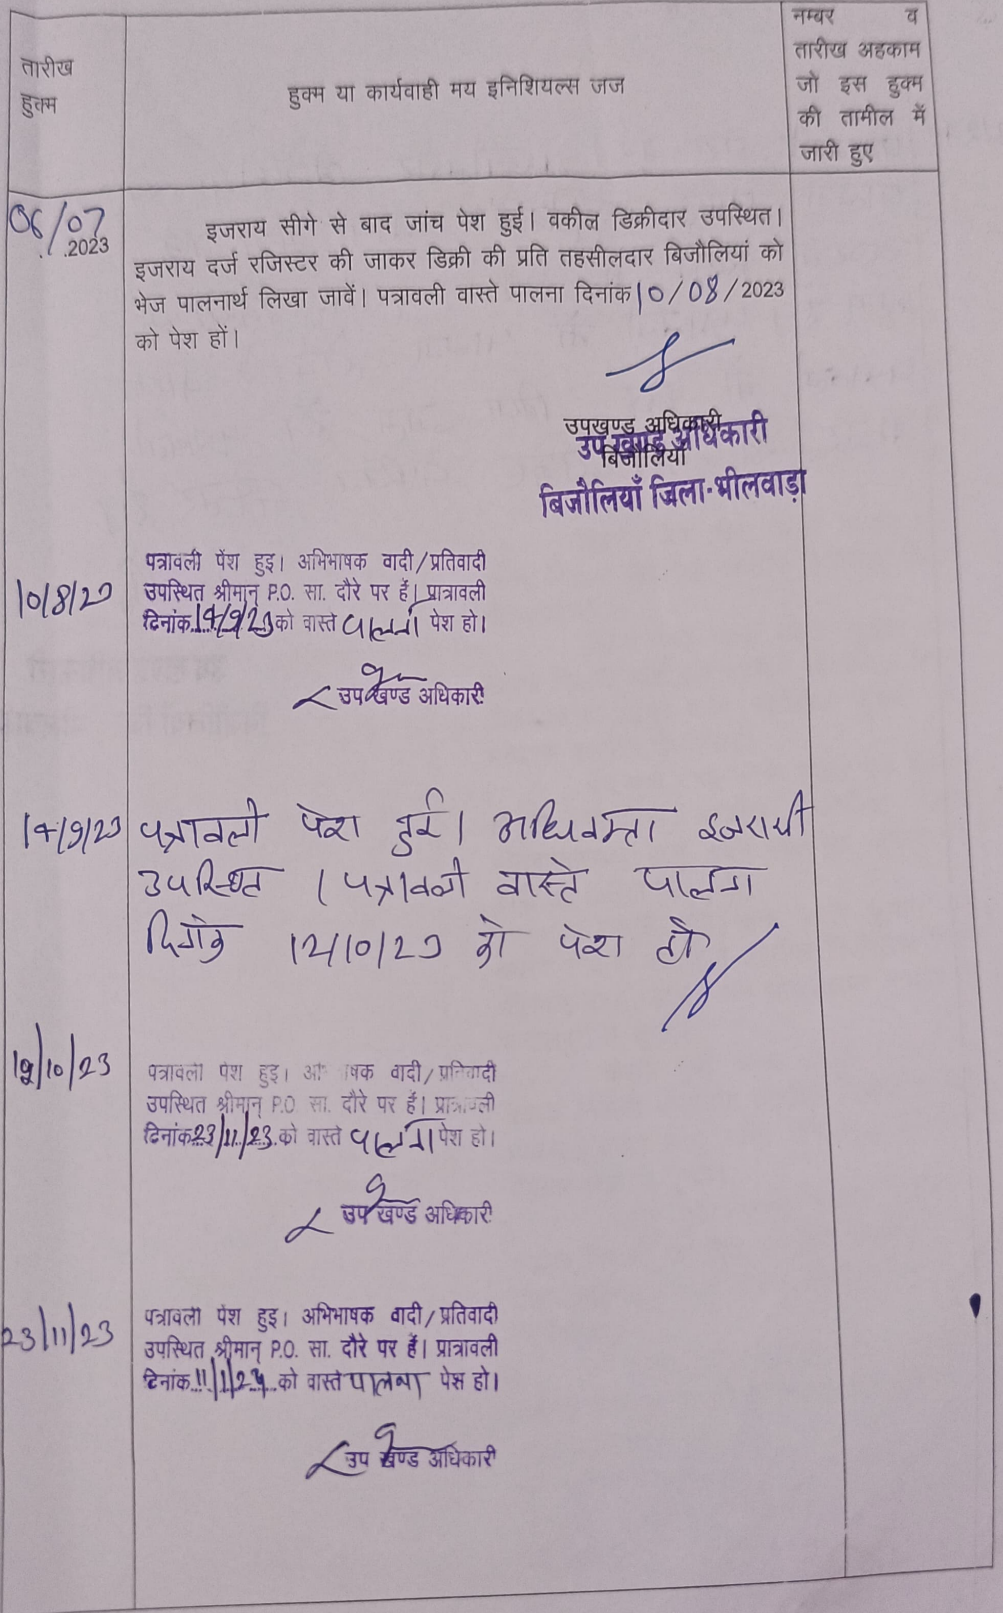 तारीख
हुक्म
हुक्म या कार्यवाही मय इनिशियल्स जज
नम्बर व
तारीख अहकाम
जो इस हुक्म
की तामील में
जारी हुए
06/07
.2023
इजराय सीगे से बाद जांच पेश हुई। वकील डिक्रीदार उपस्थित।
इजराय दर्ज रजिस्टर की जाकर डिक्री की प्रति तहसीलदार बिजौलियां को
भेज पालनार्थ लिखा जावें। पत्रावली वास्ते पालना दिनांक 10/08/2023
को पेश हों।
उपखण्ड अधिकारी
उप खण्ड अधिकारी
बिजौलियां
बिजौलियाँ जिला-भीलवाड़ा
10/8/23
पत्रावली पेश हुइ। अभिभाषक वादी/प्रतिवादी
उपस्थित श्रीमान् P.O. सा. दौरे पर हैं। प्रात्रावली
दिनांक 14/9/23 को वास्ते पालना पेश हो।
उप खण्ड अधिकारी
14/9/23
पत्रावली पेश हुई। अधिवक्ता इजरायी
उपस्थित। पत्रावली वास्ते पालना
दिनांक 12/10/23 को पेश हो
12/10/23
पत्रावली पेश हुइ। अभिभाषक वादी/प्रतिवादी
उपस्थित श्रीमान् P.O. सा. दौरे पर हैं। प्रात्रावली
दिनांक 23/11/23 को वास्ते पालना पेश हो।
उप खण्ड अधिकारी
23/11/23
पत्रावली पेश हुइ। अभिभाषक वादी/प्रतिवादी
उपस्थित श्रीमान् P.O. सा. दौरे पर हैं। प्रात्रावली
दिनांक 11/1/24 को वास्ते पालना पेश हो।
उप खण्ड अधिकारी